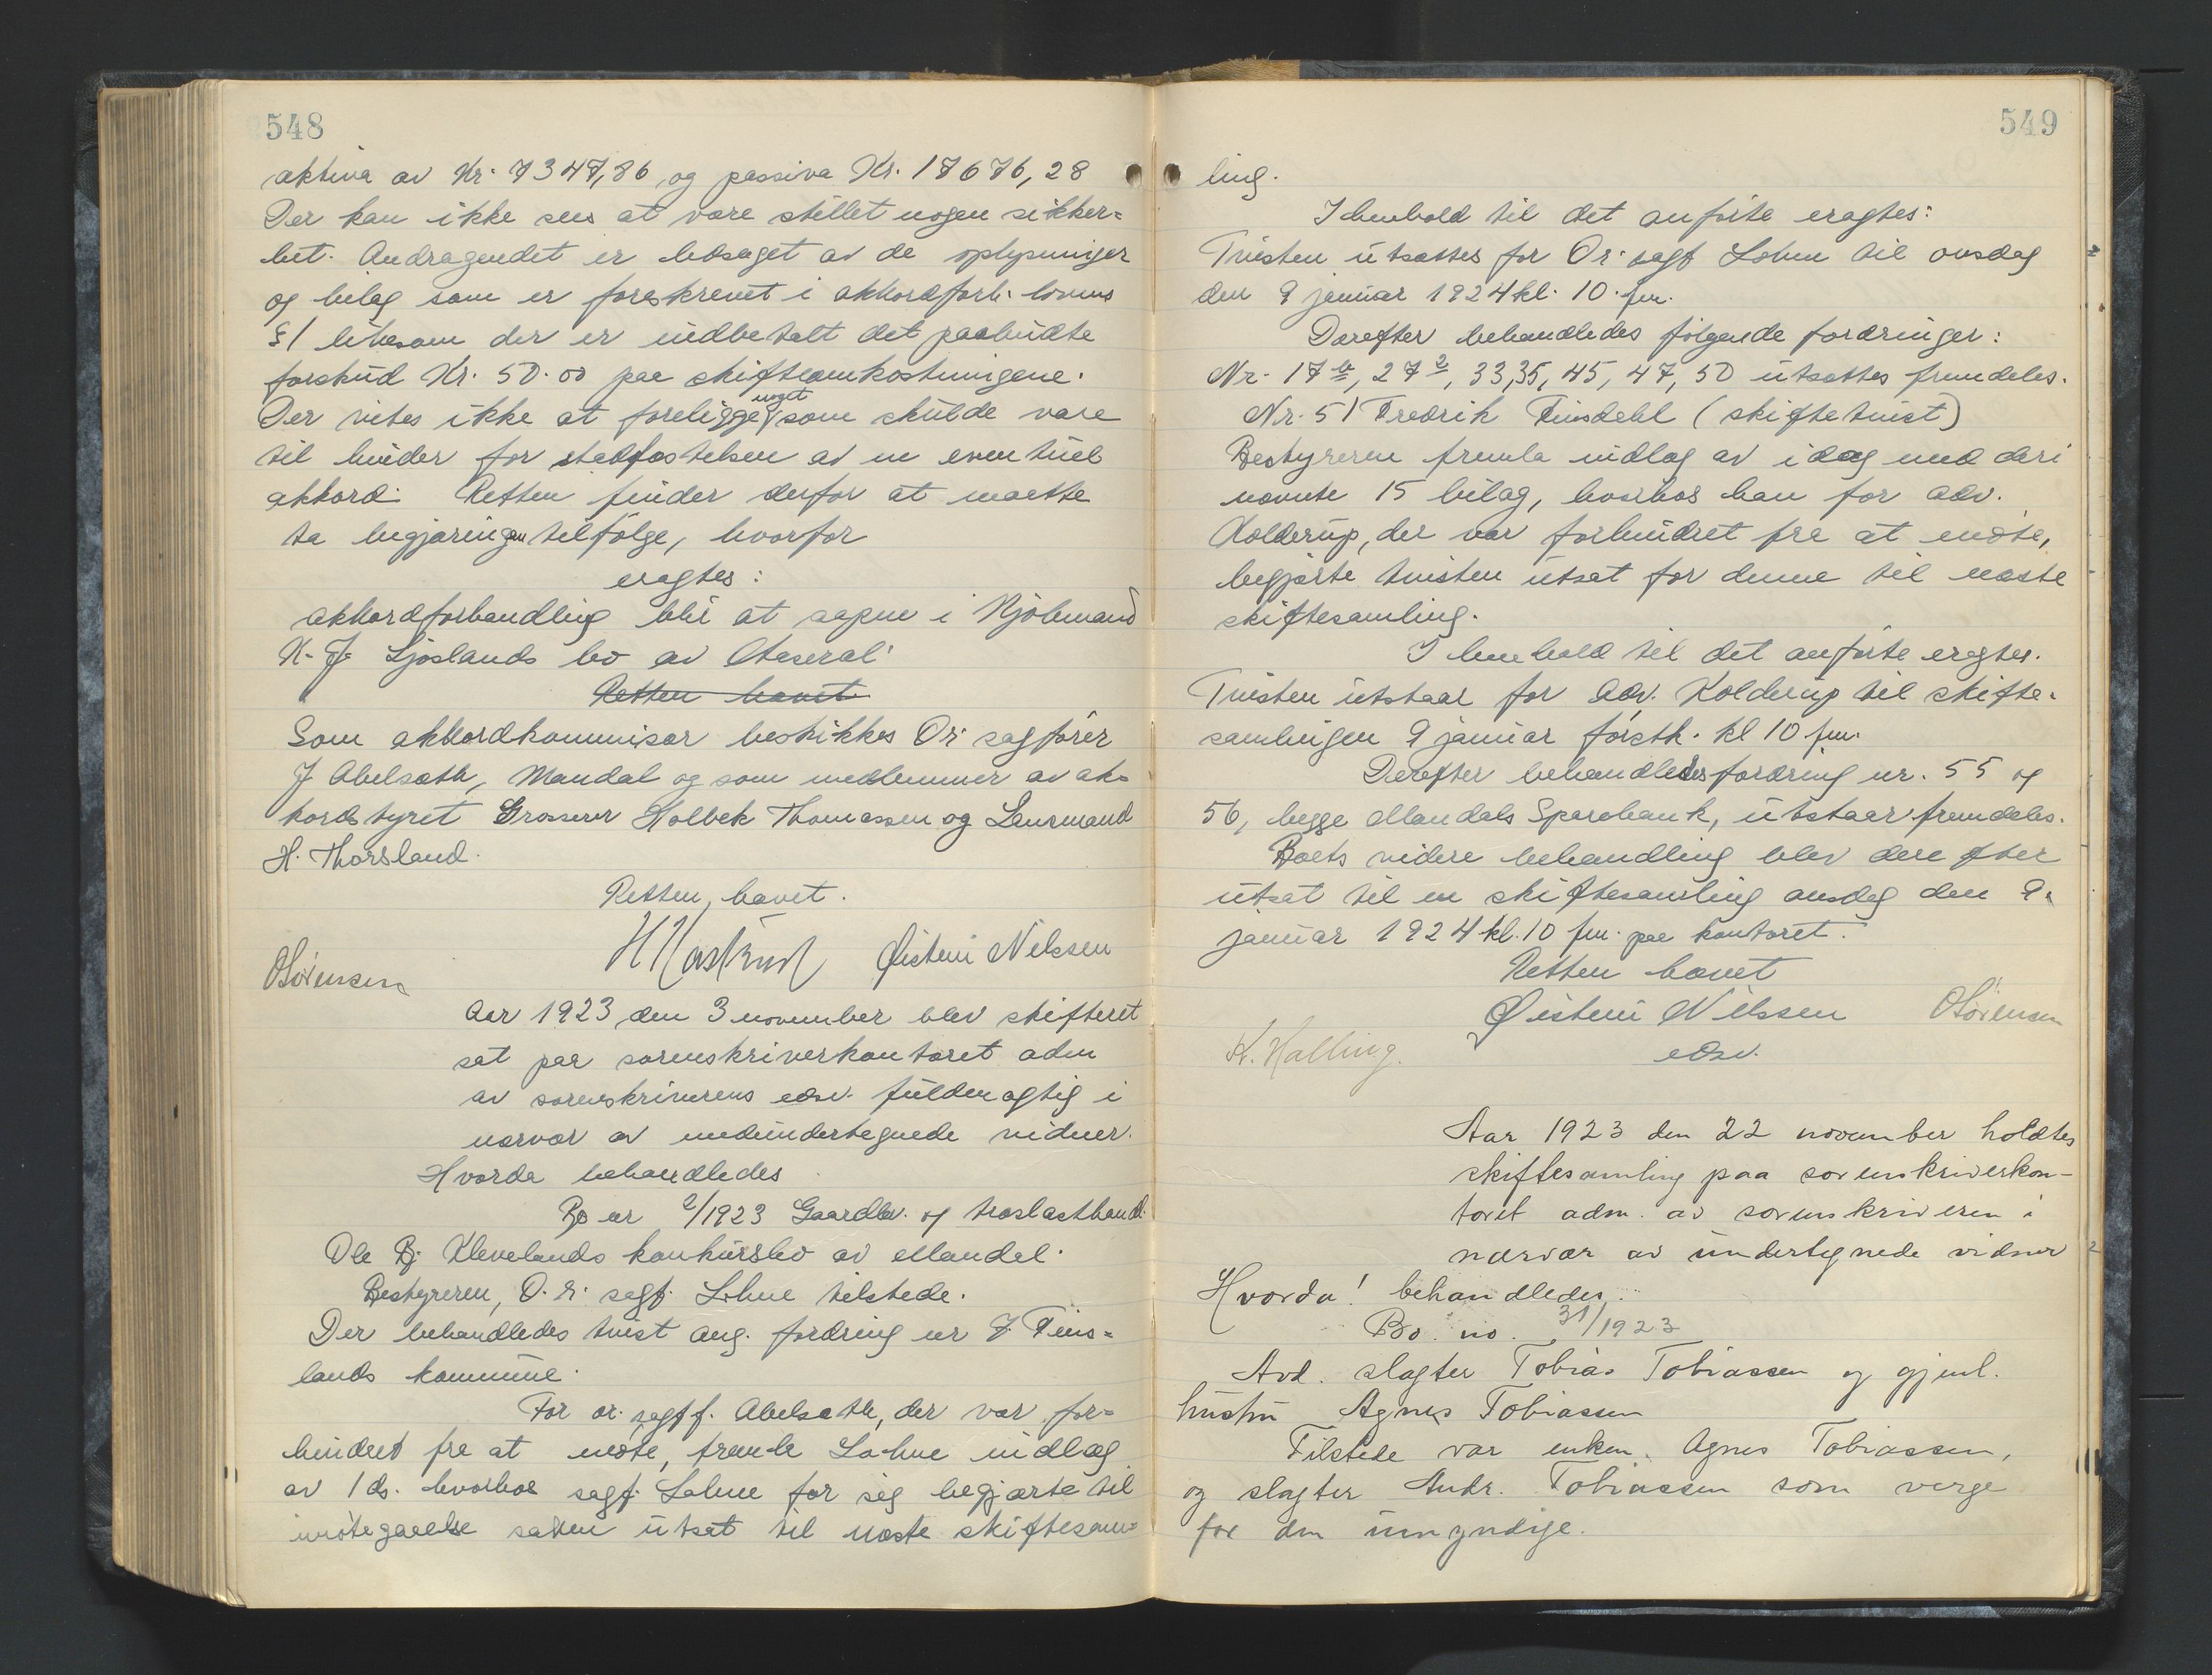 548
aktiva av Kr. 7347,86, og passiva Kr. 17676,28
Der kan ikke sees at være stillet nogen sikker=
het. Andragendet er ledsaget av de oplysninger
og bilag som er foreskrevet i akkordforh. lovens
§1 likesom der er indbetalt det paabudte
forskud Kr. 50.00 paa skifteomkostningene.
Der vites ikke at foreligge noget som skulde være
til hinder for stadfæstelsen av en eventuel
akkord. Retten finder derfor at maatte
ta begjæringen tilfølge, hvorfor
eragtes:
akkordforhandling blir at aapne i Kjøbmand
K. J. Ljoslands bo av Aaseral.
Retten hævet
Som akkordkommisær beskikkes Or. sagfører
J Abelsæth, Mandal og som medlemmer av ak=
kordstyret Grosserer Holbek Thomassen og Lensmand
H. Thorsland.
Retten hævet.
Øistein Nilssen
OSörensen
Aar 1923 den 3 november blev skifteret
sat paa sorenskriverkontoret adm
av sorenskriverens edsv. fuldmægtig i
nærvær av medundertegnede vidner.
Hvorda behandledes
Bo nr 2/1923 Gaardbr. og træslasthand.
Ole Bj Klevelands konkursbo av Mandal.
Bestyreren, O. r. sagf. Lohne tilstede.
Der behandledes tvist ang. fordring nr 7. Fins=
lands kommune.
For or. sagff. Abelsæth, der var for=
hindret fra at møte, fremla Lohne indlæg
av 1 ds. hvorhos sagf. Lohne for sig begjærte til
imøtegaaelse saken utsat til næste skiftesam=
549
ling.
I henhold til det anførte eragtes:
Tvisten utsættes for Or. sagf Lohne til onsdag
den 9 januar 1924 kl. 10. fm.
Derefter behandledes følgende fordringer:
Nr. 17 b, 27 2, 33,35, 45, 47, 50 utsættes fremdeles.
Nr. 51 Fredrik Finsdahl (skiftetvist)
Bestyreren fremla indlæg av idag med deri
nævnte 15 bilag, hvorhos han for adv.
Kolderup, der var forhindret fra at møte,
begjærte tvisten utsat for denne til næste
skiftesamling.
I henhold til det anførte eragtes.
Tvisten utstaar for Adv. Kolderup til skifte=
samlingen 9 januar førstk. kl 10 fm.
Derefter behandledes fordring nr. 55 og
56, begge Mandals Sparebank, utstaar fremdeles.
Boets videre behandling blev derefter
utsat til en skiftesamling onsdag den 9.
januar 1924 kl. 10 fm. paa kontoret.
Retten hævet
Øistein Nilssen OSörensen
K. Halling. edsv.
Aar 1923 den 22 november holdtes
skiftesamling paa sorenskriverkon-
toret adm. av sorenskriveren i
nærvær av undertegnede vidner
Hvorda! behandledes:
Bo. no. 31/1923
Avd. slagter Tobias Tobiassen og gjenl.
hustru Agnes Tobiassen
Tilstede var enken Agnes Tobiassen,
og slagter Andr. Tobiassen som verge
for den umyndige.